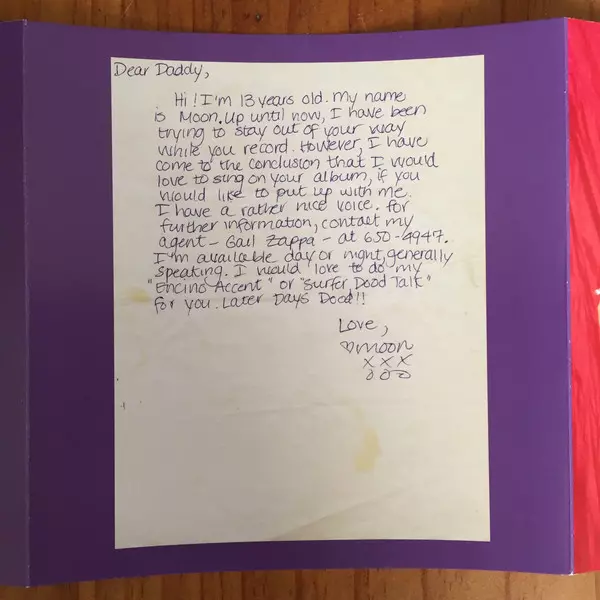 Dear Daddy,
Hi! I'm 13 years old. My name
is Moon. Up until now, I have been
trying to stay out of your way
while you record. However, I have
come to the conclusion that I would
love to sing on your album, if you
would like to put up with me.
I have a rather nice voice. For
further information, contact my
agent - Gail Zappa - at 650-4947.
I'm available day or night, generally
speaking. I would love to do my
"Encino Accent" or "Surfer Dood Talk"
for you. Later Days Dood!!
Love,
♡Moon
X X X
O O O